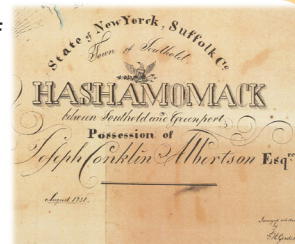 State of New Yorck, Suffolk Co
Town of Southold
HASHAMOMACK
between Southold and Greenport
Possession of
Joseph Conklin Albertson Esqr
August 1831.
by